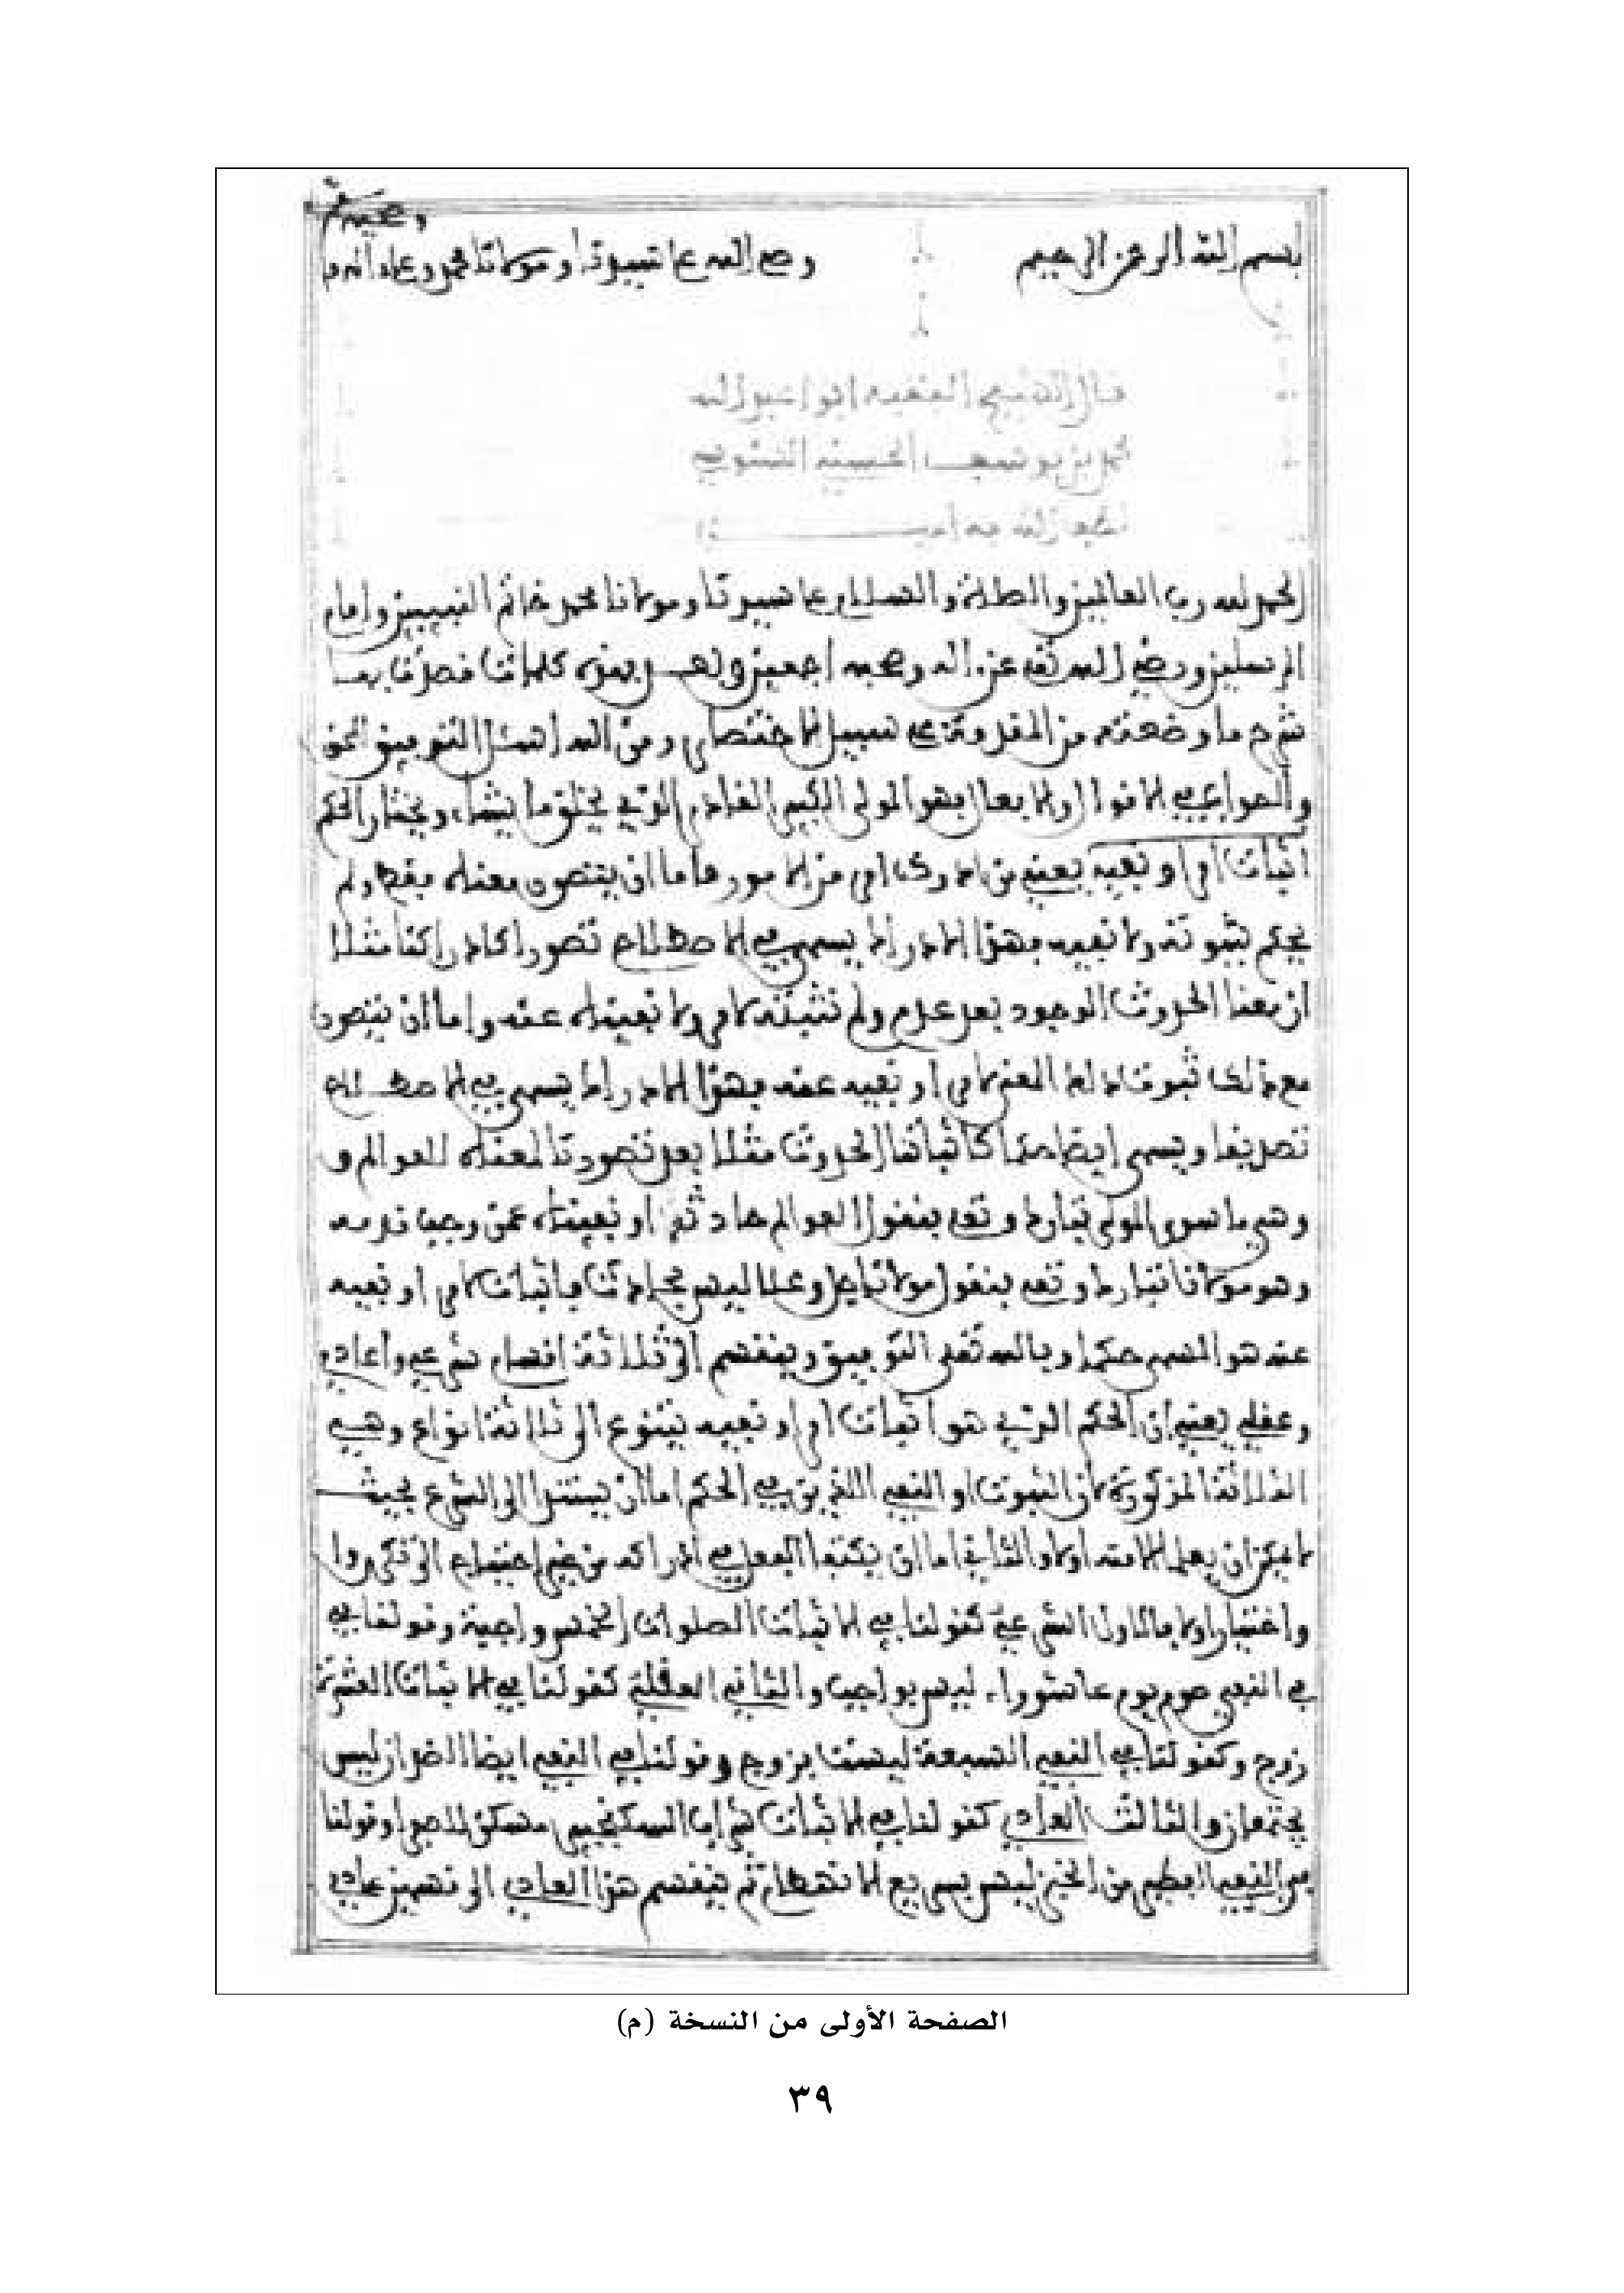 وصحبه
بسم الله الرحمن الرحيم وصلى الله على سيدنا ومولانا محمد وعلى اله
قال الشيخ الفقيه ابو عبد الله
محمد بن يوسف الحسني السنوسي
نفعنا الله به امين
الحمد لله رب العالمين والصلاة والسلام على سيدنا ومولانا محمد خاتم النبيين وامام
المرسلين ورضي الله تعلى عن اله وصحبه اجمعين وبعد فهذه كلمات قصدت بها
شرح ما وضعته من المقدمة على سبيل الاختصار ومن الله اسئل التوفيق الحق
والصواب في الاقوال والافعال فهو المولى الكريم القادر الذي يخلق ما يشاء ويختار الحكم
اثبات امر او نفيه يعني من ادرك امرا من الامور فاما ان يتصور معناه فقط ولم
يحكم بثبوته ولا نفيه فهذا الادراك يسمى في الاصطلاح تصورا كادراكنا مثلا
ان معنا الحدوث الوجود بعد عدم ولم نثبته لامر ولا نفيناه عنه واما ان يتصور
مع ذلك ثبوت ذلك المعنى لامر او نفيه عنه فهذا الادراك يسمى في الاصطلاح
تصديقا ويسمى ايضا حكما كاثباتنا الحدوث مثلا بعد تصورنا لمعناه للعوالم و
وهي ما سوى المولى تبارك وتعلى فنقول العوالم حادثة او نفيناه عمن وجب قدمه
وهو مولانا تبارك وتعلى فنقول مولانا جل وعلا ليس بحادث فاثبات امر او نفيه
عنه هو المسمى حكما وبالله تعلى التوفيق وينقسم الى ثلاثة اقسام شرعي وعادي
وعقلي يعني ان الحكم الذي هو اثبات امر او نفيه يتنوع الى ثلاثة انواع وهي
الثلاثة المذكورة لان الثبوت او النفي اللذين في الحكم اما ان يستندا الى الشرع بحيث
لا يمكن ان يعلم الا منه اولا والثاني اما ان يكتفا العقل في ادراكه من غير احتياج الى تكرر وا
واختبار اولا فالاول الشرعي كقولنا في الاثبات الصلوات الخمس واجبة وقولنا في
في النفي صوم يوم عاشوراء ليس بواجب والثاني العقلي كقولنا في الاثبات العشرة
زوج وكقولنا في النفي السبعة ليست بزوج وقولنا في النفي ايضا الضدان ليس
يجتمعان والثالث العادي كقولنا في الاثبات شراب السكنجبين مسكن للصفرا وقولنا
في النفي الفطير من الخبز ليس بسريع الانهضام ثم ينقسم هذا العادي الى قسمين عادي
الصفحة الأولى من النسخة (م)
٣٩